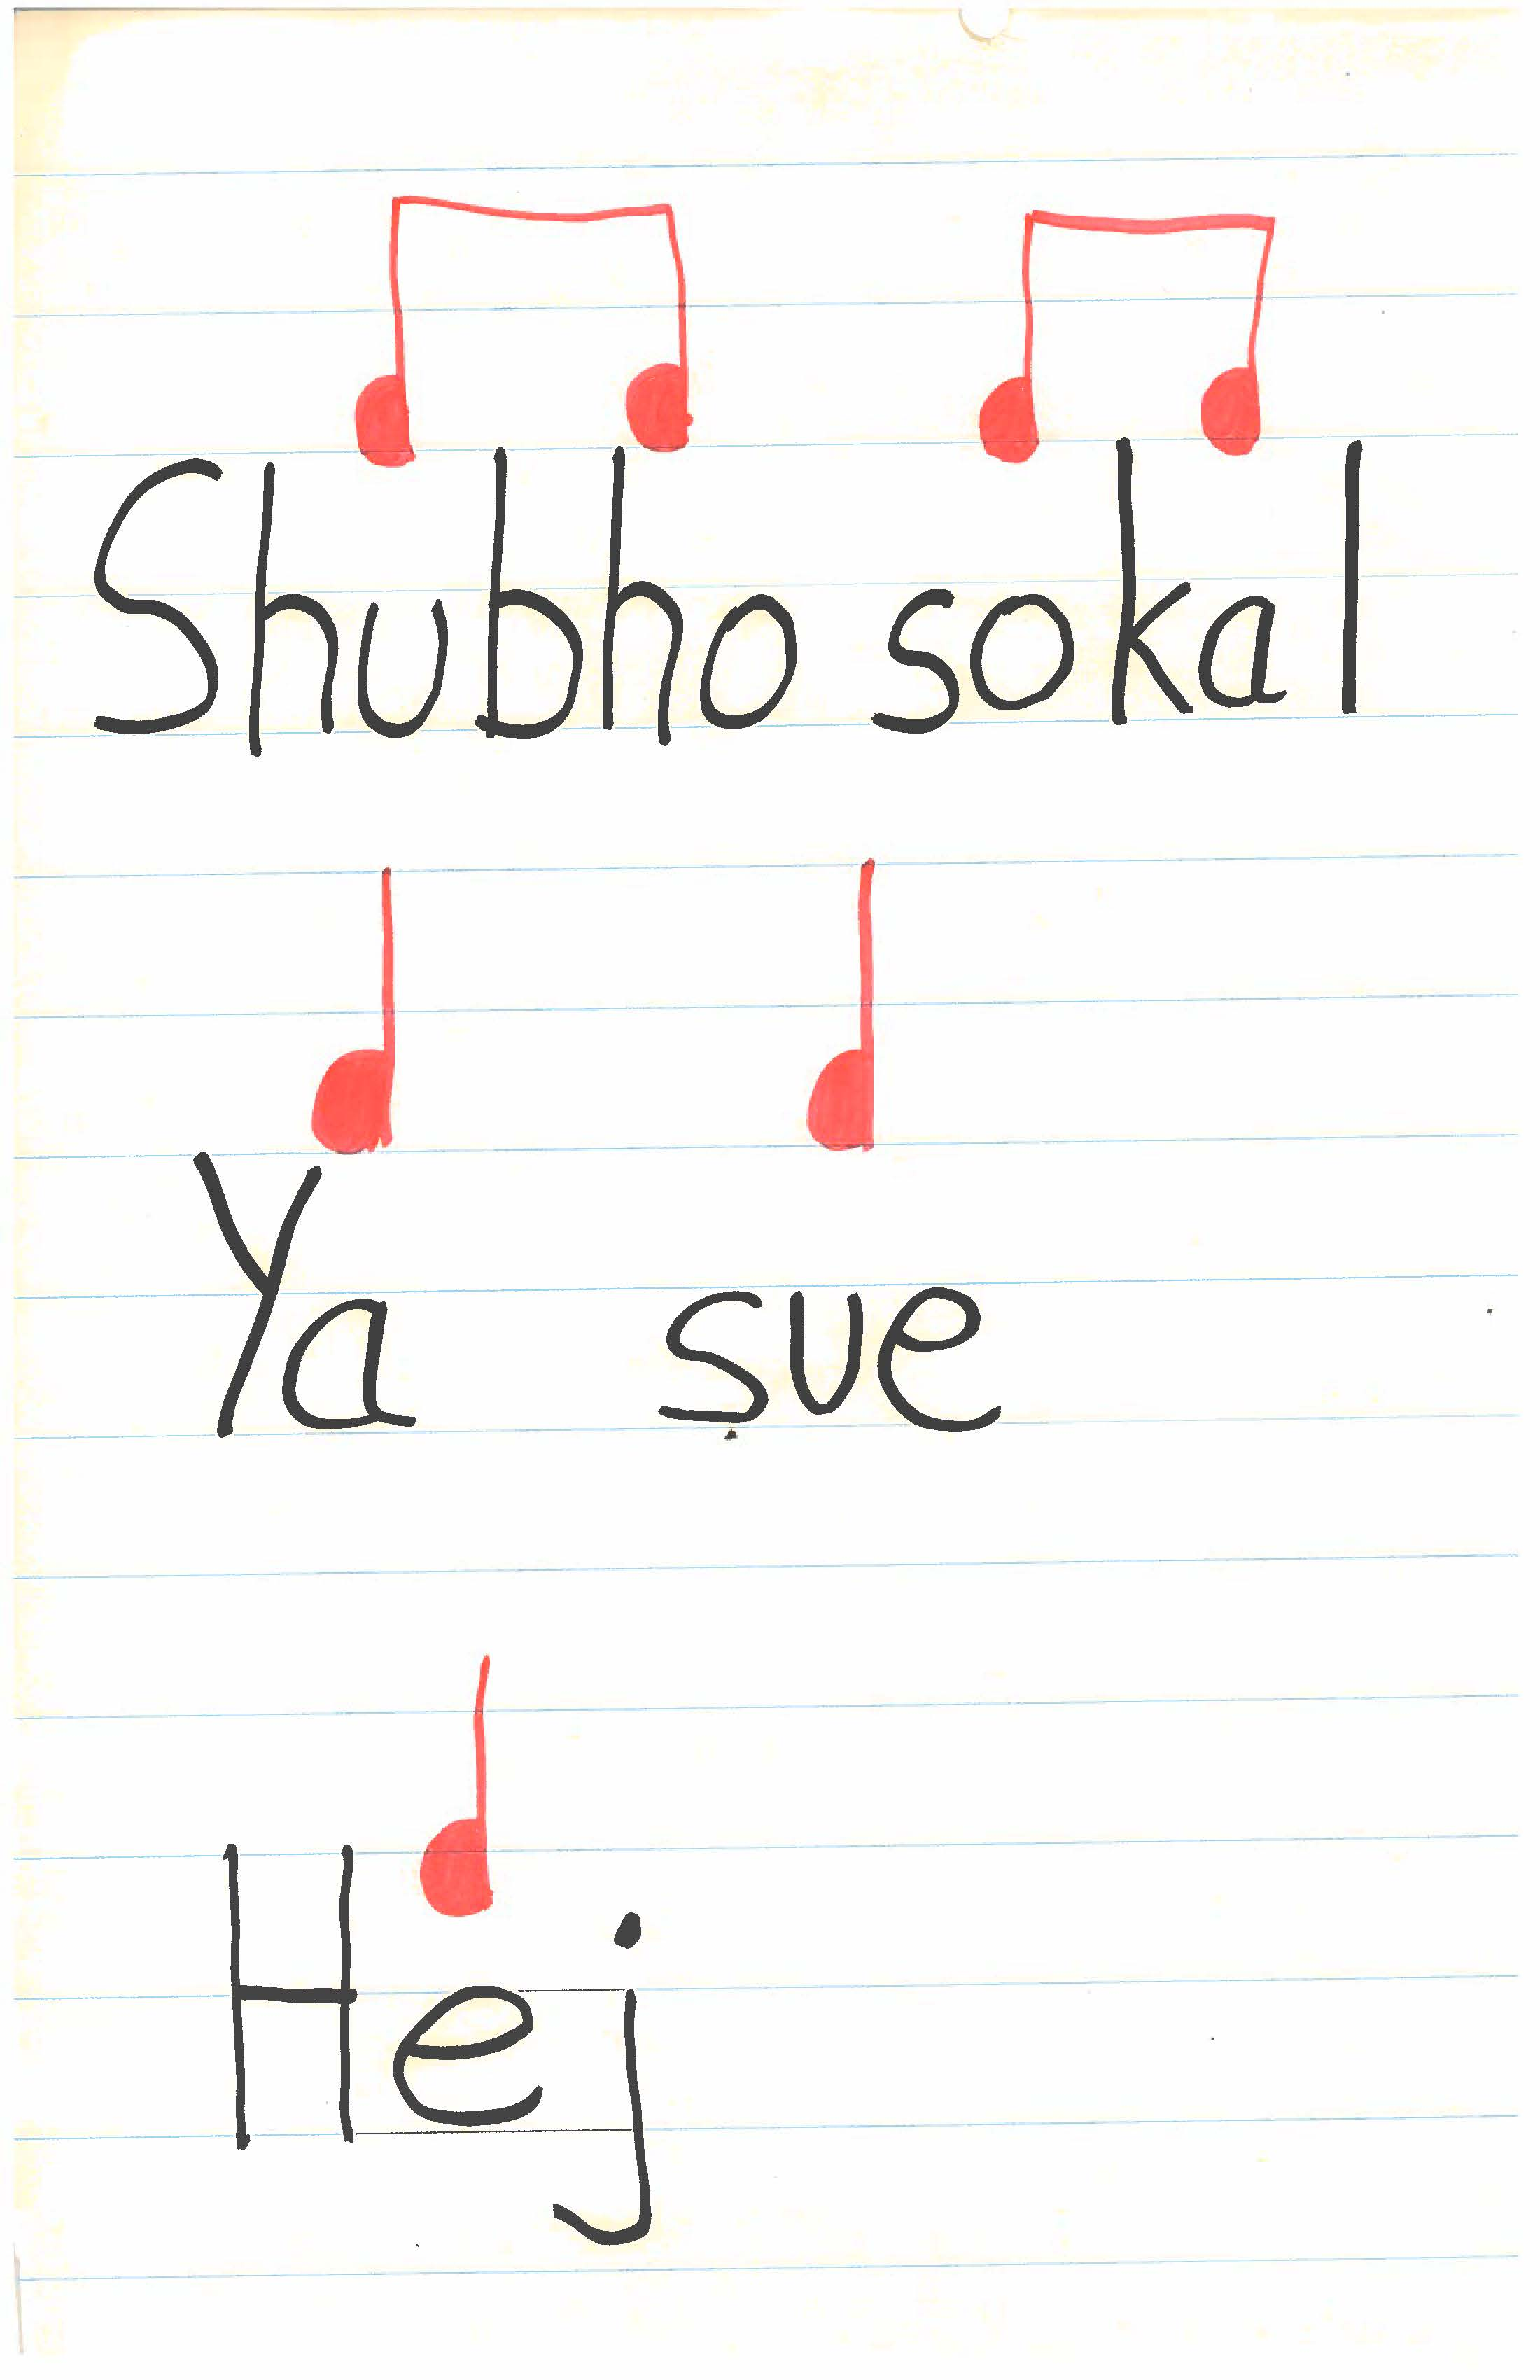 Shubho sokal
Ya sue
Hej